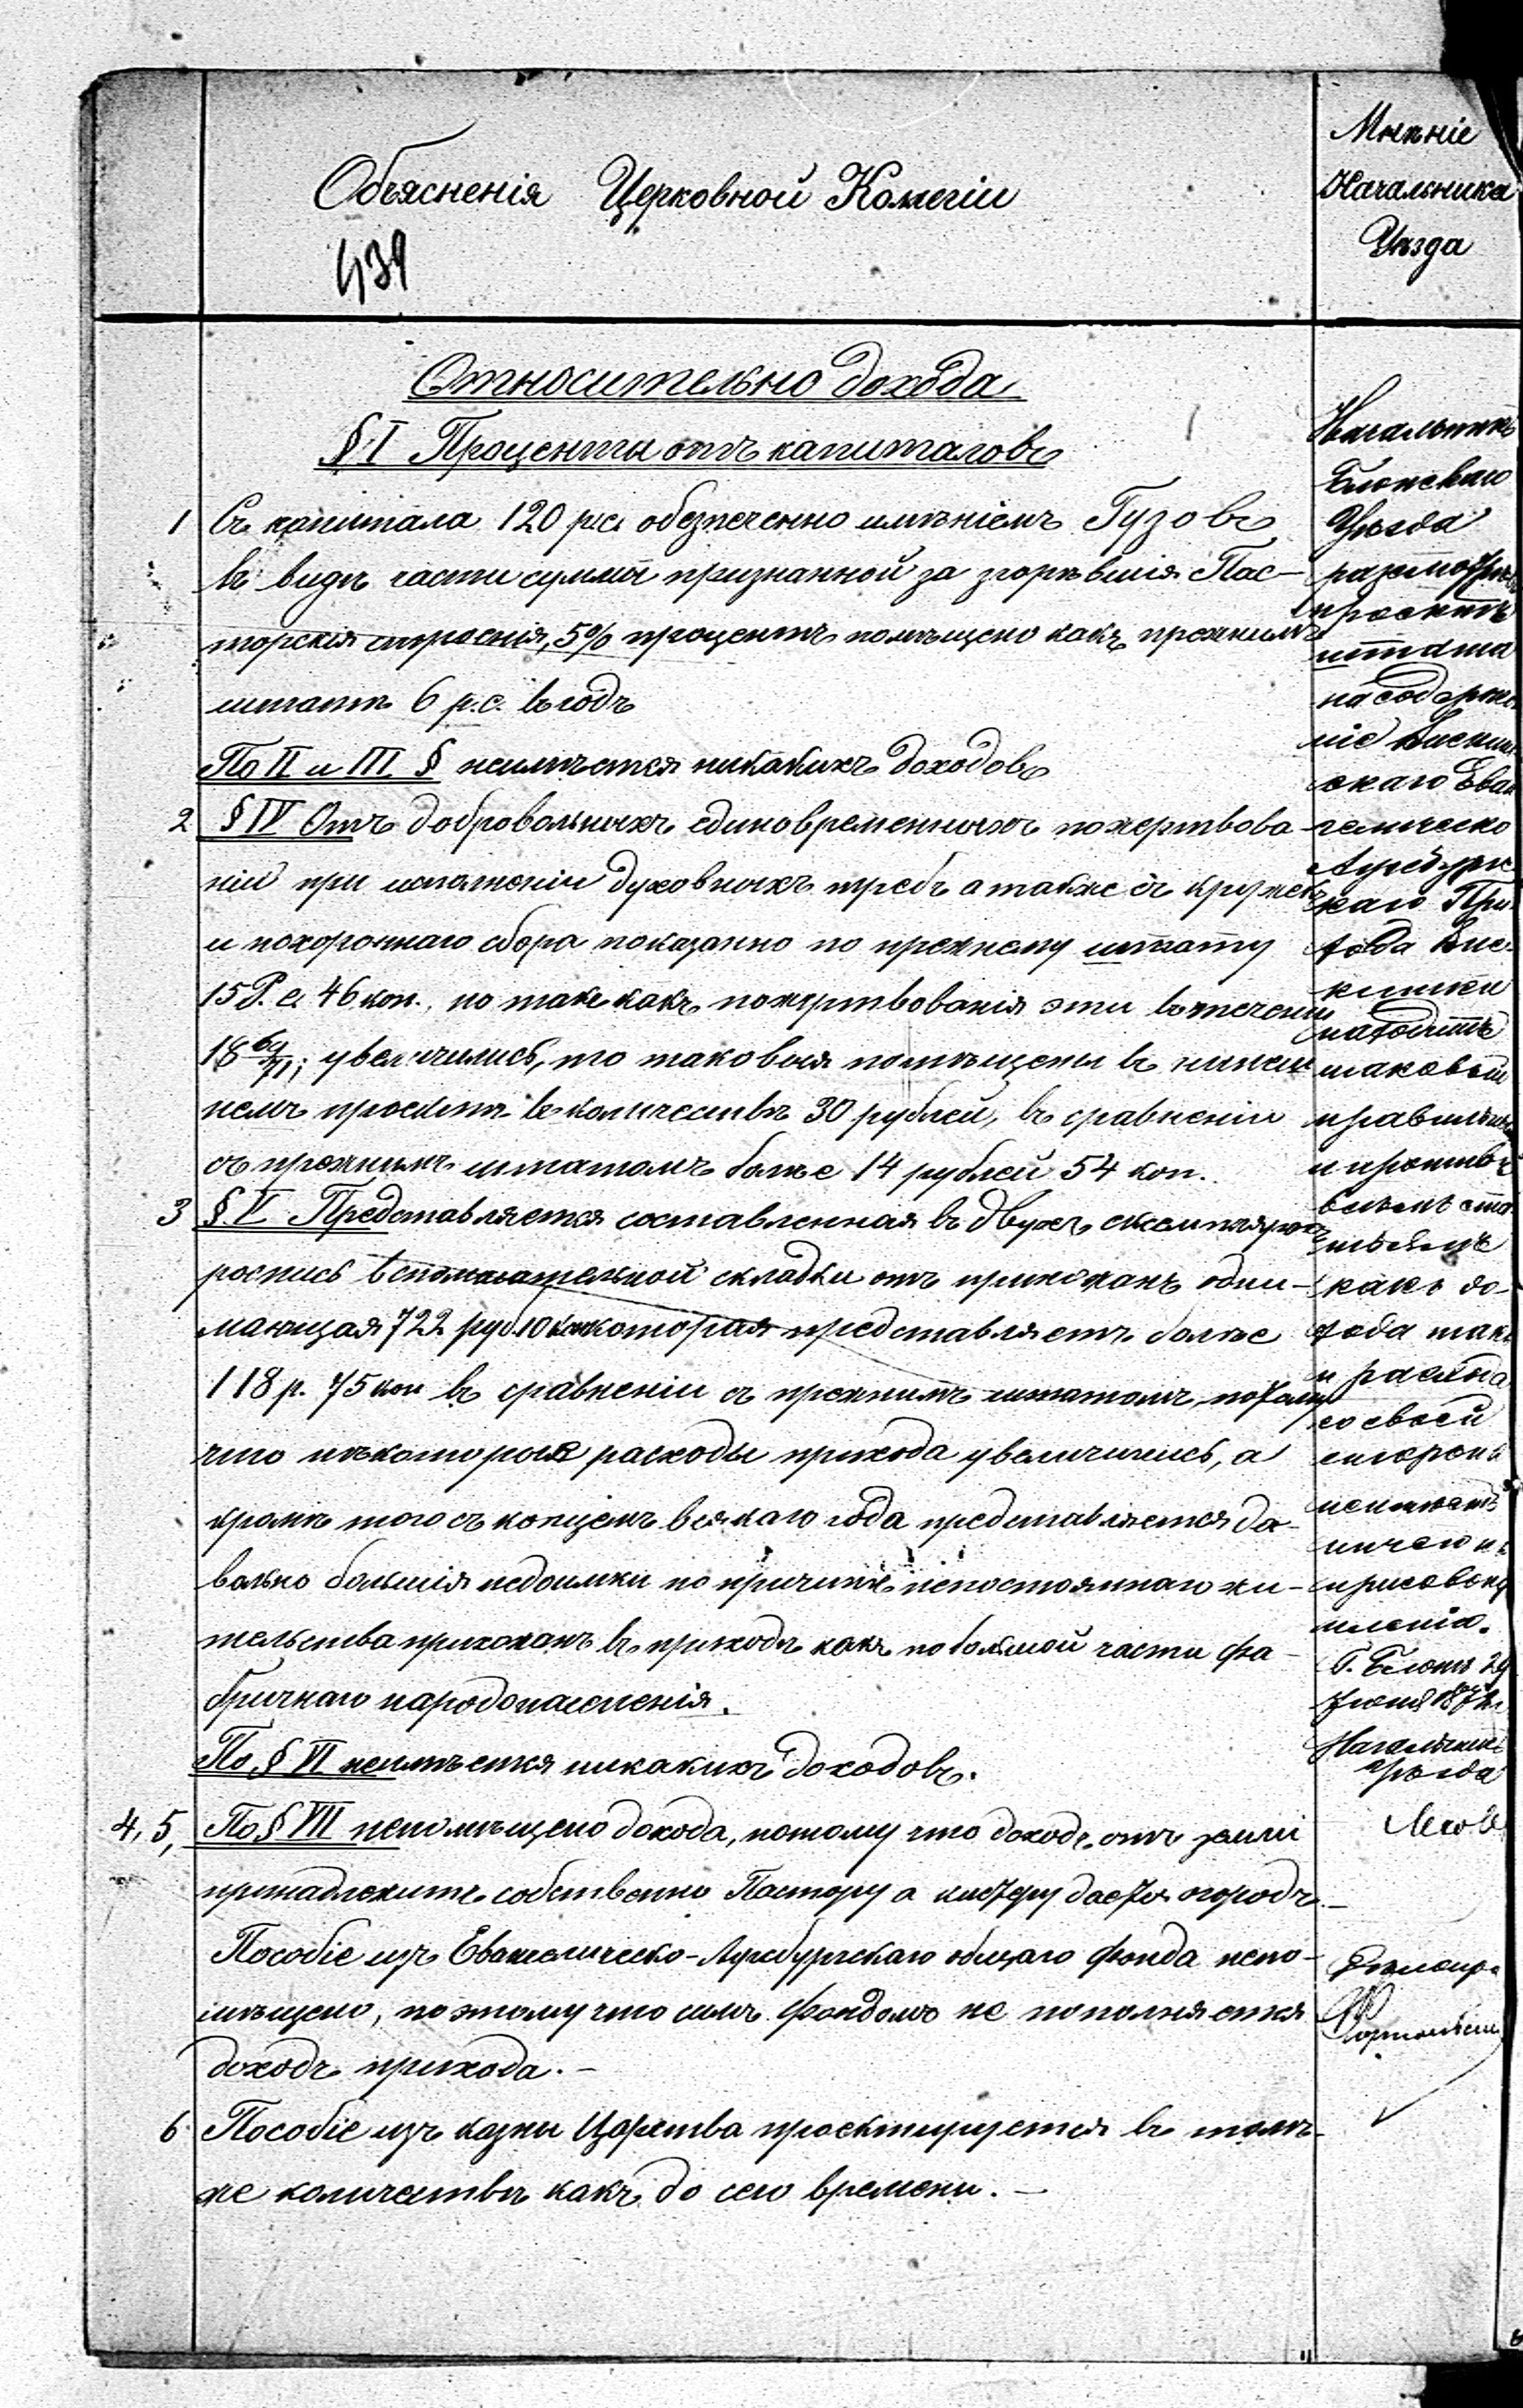 Объясненія Церковной Коллегіи
439
Мнѣніе
Начальника
Уѣзда
Относительно дохода
§ I Проценты отъ капиталовъ
1 Съ капитала 120 р.с. обезпеченно имѣніемъ Гузовъ
въ видѣ части суммы признанной за згорѣвшія Пас-
торскія строенія, 5% процентъ помѣщено какъ прежнимъ
штатѣ 6 р.с. въ годъ
По II и III § неимѣется никакихъ доходовъ
2 § IV Отъ добровольныхъ единовременныхъ пожертвова-
ніи при исполненіи духовныхъ требъ а также съ кружекъ
и похороннаго сбора показанно по прежнему штату
15 Р. с. 46 коп., но такъ какъ пожертвованія эти въ теченіи
18 69/71; увеличились, то таковыя помѣщены въ нынеш
немъ проектѣ въ количествѣ 30 рублей, въ сравненіи
съ прежнимъ штатомъ болѣе 14 рублей 54 коп.
3 § V Представляется составленная въ двухъ екземплярахъ
роспись вспомогательной складки отъ прихожанъ
мающая 722 руб 10 коп которая представляетъ болѣе
118 р. 75 коп въ сравненіи съ прежнимъ штатомъ, потому
что нѣкоторые расходы прихода увеличились, а
кромѣ того съ концемъ всякаго года представляется до-
вольно большія недоимки по причинѣ непостояннаго жи-
тельства прихожанъ въ приходѣ какъ по большой части фа-
бричнаго народонаселенія.
По § VI неимѣется никакихъ доходовъ.
4, 5, По § VII непомѣщено дохода, потому что доходъ отъ земли
принадлежитъ собственно Пастору а кистеру дается огородъ.—
Пособіе изъ Евангелическо-Аугсбургскаго общаго Фонда непо-
мѣщено, поэтому что симъ Фондомъ не пополняется
доходъ прихода.—
6 Пособіе изъ казны Царства проектируется въ томъ-
же количествѣ какъ до сего времени.—
Начальникъ
Блонскаго
Уѣзда
разсмотрѣвъ
проектъ
штата
на содержа
ніе Вискит
скаго Еван
гелическо
Аугсбургс
каго При
хода Вис-
китки
находитъ
таковый
правильнымъ
и противъ
статьямъ
какъ до-
хода такъ
и расхода
со своей
стороны
неимѣетъ
ничего къ
присовоку
пленію.
Г. Блонь 29
Іюня 187
Начальникъ
уѣзда